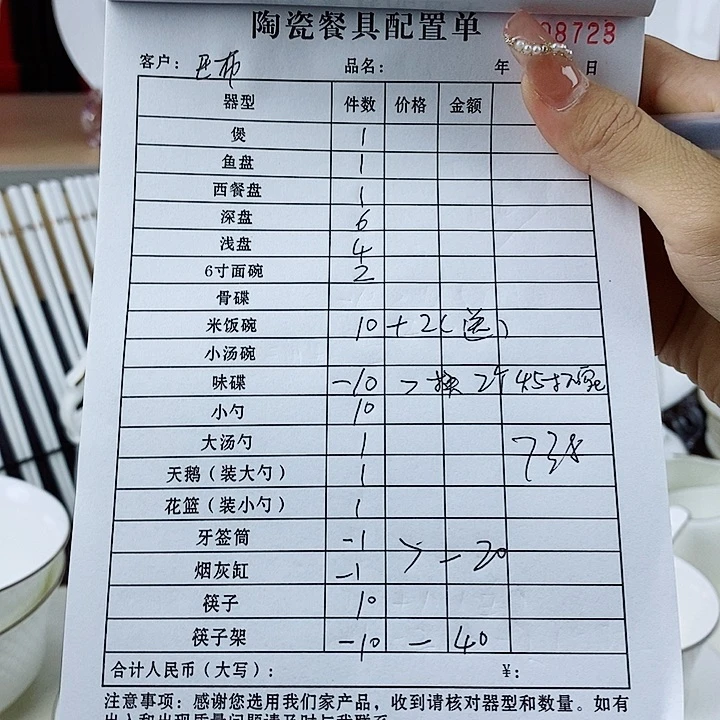 陶瓷餐具配置单 08723
客户： 品名： 年 日
器型 件数 价格 金额
煲 1
鱼盘 1
西餐盘 1
深盘 6
浅盘 4
6寸面碗 2
骨碟
米饭碗 10+2(送)
小汤碗
味碟 -10 > 换 2个 4.5寸
小勺 10
大汤勺 1 738
天鹅（装大勺） 1
花篮（装小勺） 1
牙签筒 -1
烟灰缸 -1 > -20
筷子 10
筷子架 -10 - 40
合计人民币（大写）： ¥：
注意事项：感谢您选用我们家产品，收到请核对器型和数量。如有